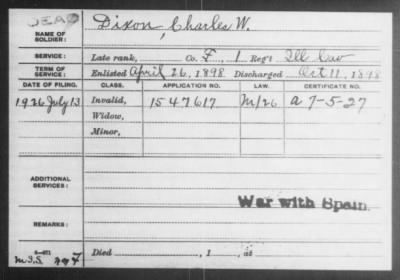 DEAD
NAME OF SOLDIER: Dixon, Charles W.
SERVICE: Late rank, Co. F, 1 Reg't Ill Cav
TERM OF SERVICE: Enlisted April 26, 1898 Discharged Oct 11, 1898
DATE OF FILING. CLASS. APPLICATION NO. LAW. CERTIFICATE NO.
1926 July 13 Invalid, 1547617 M/26 a 7-5-27
Widow,
Minor,
ADDITIONAL SERVICES:
War with Spain.
REMARKS:
Died , 1 , at